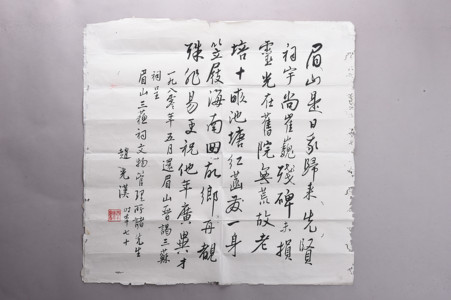 眉山是日我歸来先賢
祠宇尚崔巍殘碑未損
靈光在舊院無荒故老
培十畝池塘紅菡萏一身
笠屐海南回故鄉再覩
殊非易更祝他年廣異才
一九八〇年五月還眉山晉謁三蘇
祠呈
眉山三蘇祠文物管理所諸先生
趙完漢 時年七十